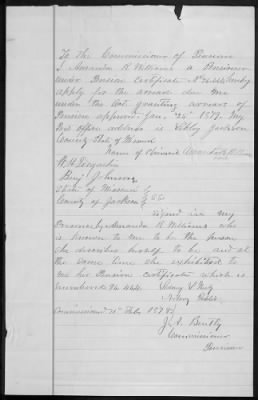 To the Commissioner of Pensions
I Amanda R. Williams a Pensioner
under Pension Certificate No hereby
apply for the arrears due me
under the Act granting arrears of
Pension approved Jan. 25" 1879. My
Post office address is Sibley Jackson
County State of Missouri
Name of Pensioner Amanda R
W. H.
Benj Johnson
State of Missouri
County of Jackson SS
signed in my
Presence by Amanda R Williams who
is known to me to be the person
she describes herself to be and at
the same time she exhibited to
me her Pension Certificate which is
numbered 96
Notary Public
Commissioned Feby 1878
J. A. Bently
Commissioner
Pensions